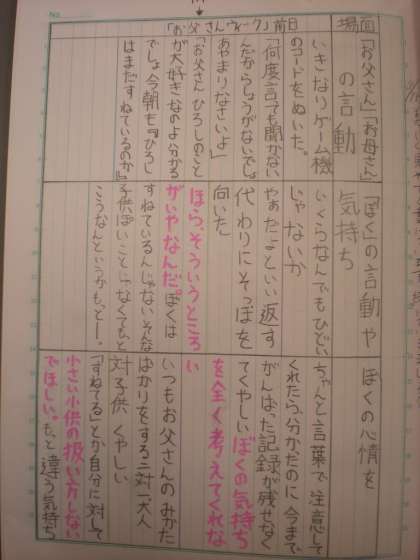 場面
「お父さんウィーク」前日
「お父さん」「お母さん」
の言動
いきなりゲーム機
のコードをぬいた。
「何度言ても聞かない
んだからしょうがないでしょ
あやまりなさいよ」
「お父さんひろしのこと
が大好きなのよ分かる
でしょ今朝も『ひろし
はまだすねているのか』
「ぼく」の言動や
気持ち
いくらなんでもひどい
じゃないか
やぁだよといい返す
代わりにそっぽを
向いた
ほら、そういうところ
がいやなんだ。ぼくは
すねているんじゃないそんな
子供ぽいことじゃなくてもっと
こうなんというかもっとー。
ぼくの心情を
ちゃんと言葉で注意して
くれたら、分かたのに 今まで
がんばった記録が残せなく
てくやしいぼくの気持ち
を全く考えてくれな
い
いつもお父さんのみかた
ばかりをする 二対一 大人
対子供 くやしい
「すねてる」とか自分に対して
小さい小供の扱い方しない
でほしい。もっと違う気持ち